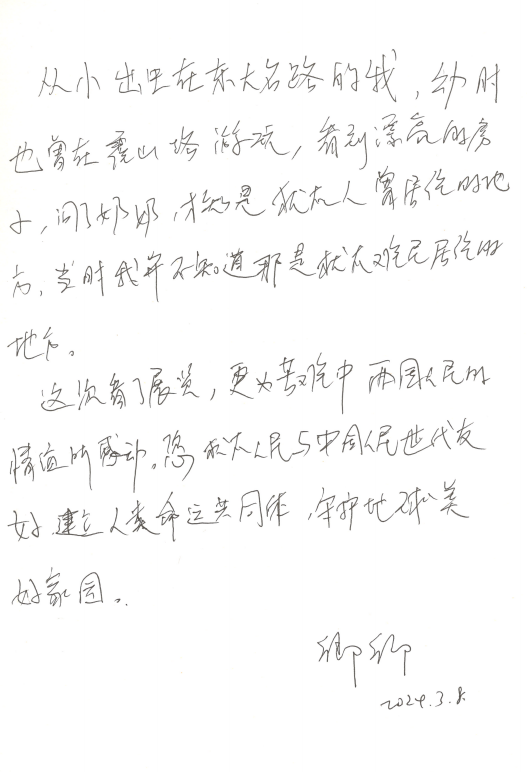 从小出生在东大名路的我，幼时
也曾在霍山路游玩，看到漂亮的房
子，问了奶奶，才知是犹太人曾居住的地
方，当时我并不知道那是犹太难民居住的
地方。
这次看了展览，更为苦难中两国人民的
情谊所感动。愿犹太人民与中国人民世代友
好，建立人类命运共同体，守护地球美
好家园。
卿卿
2024.3.8.